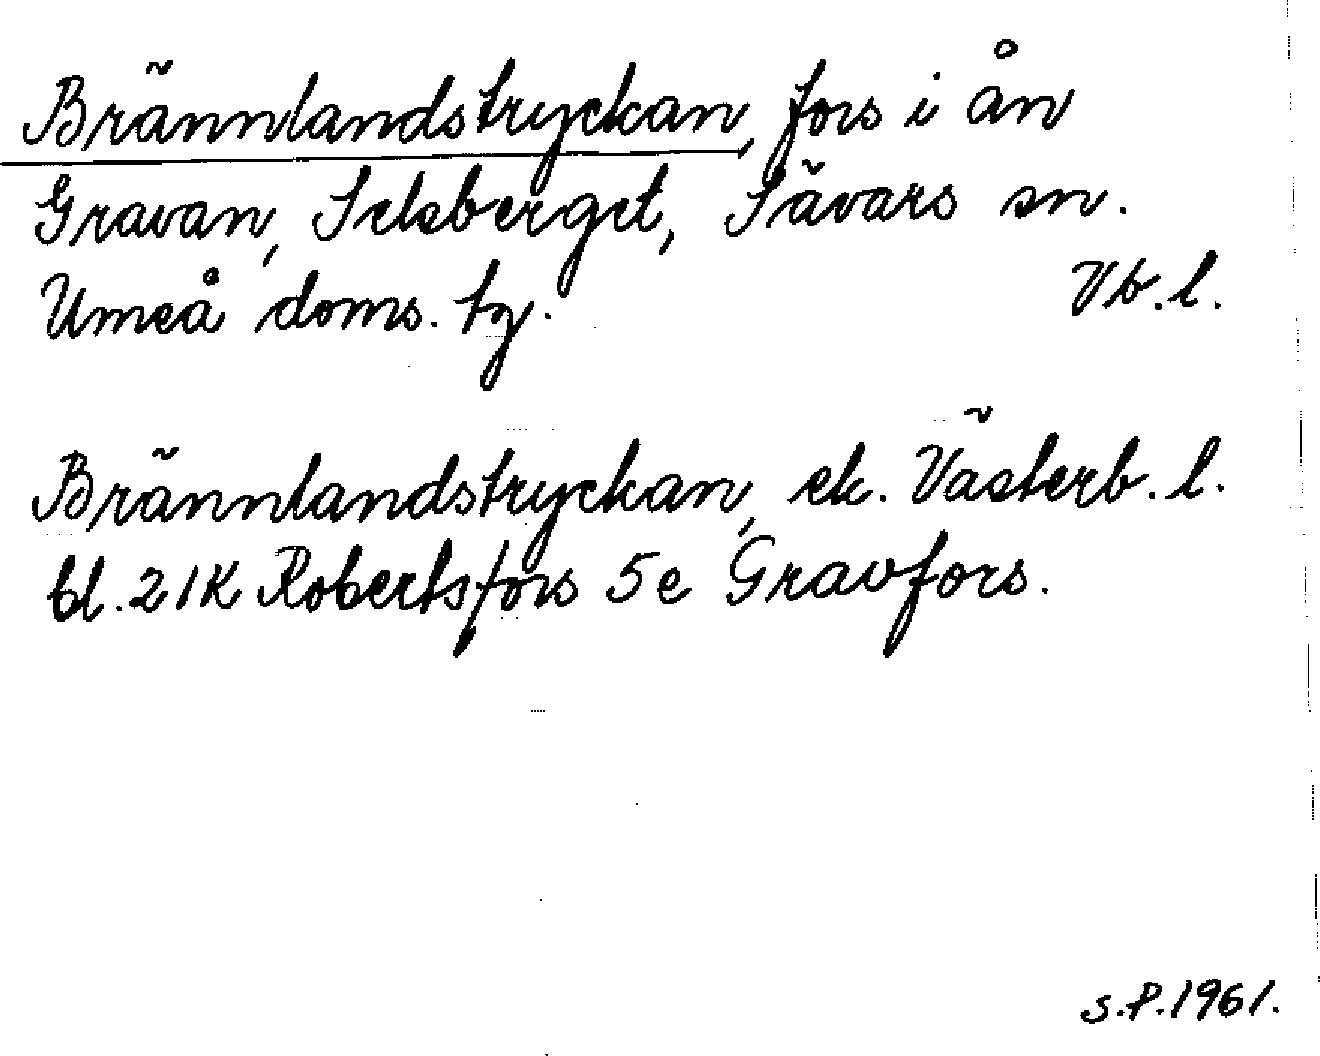 Brännlandstryckan, fors i ån
Gravan, Selsberget, Sävars sn.
Umeå doms. tg. Vb. l.
Brännlandstryckan, ek. Västerb. l.
bl. 21K Robertsfors 5e Gravfors.
S.P. 1961.